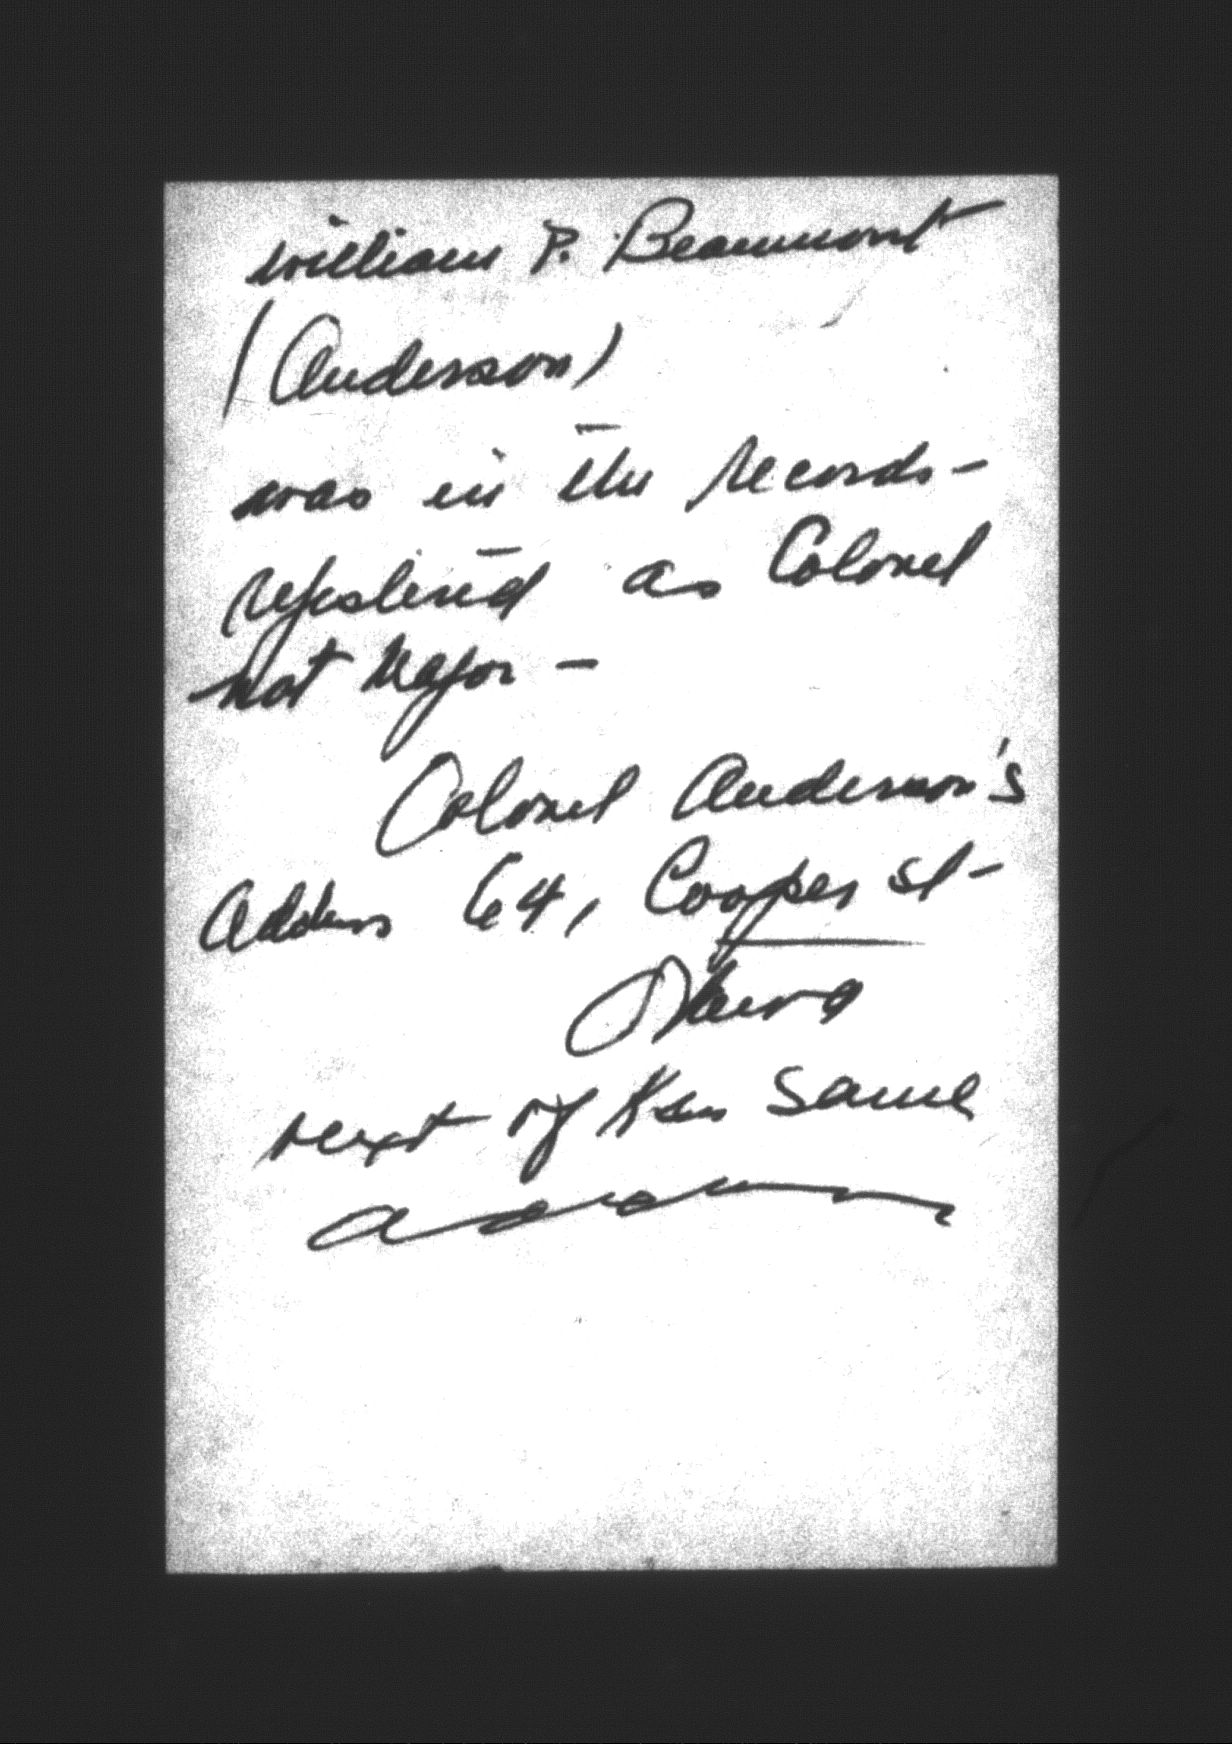 William P. Beaumont
(Anderson)
was in the records -
registered as Colonel
not Major -
Colonel Anderson's
Address 64, Cooper St -
Ottawa
next of Kin Same
address